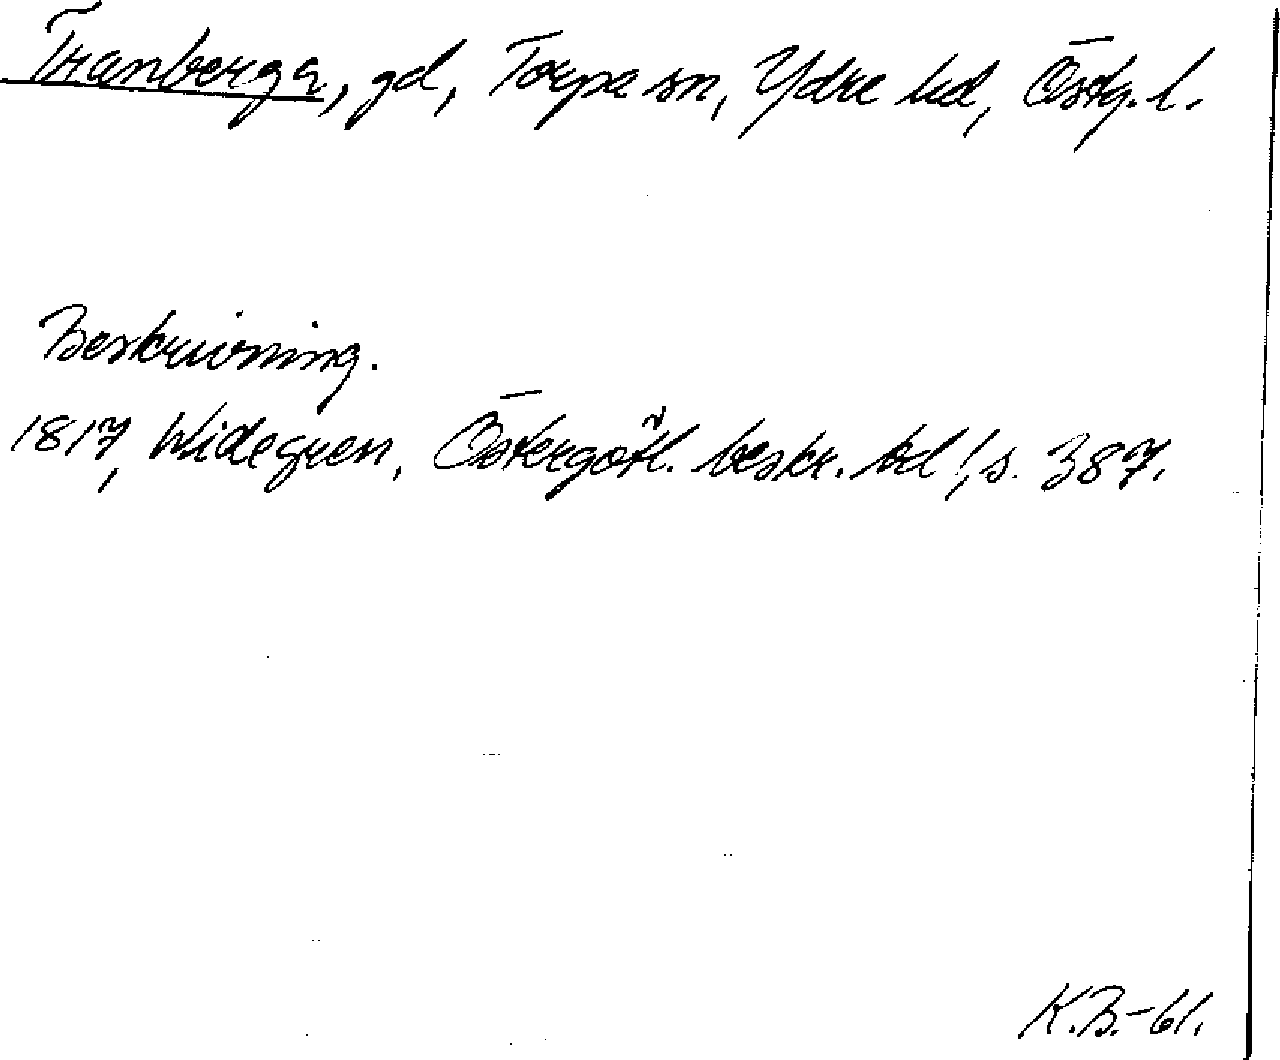 Tranberga, gd, Torpa sn, Ydre hd, Östg. l.
Beskrivning.
1817, Widegren, Östergötl. beskr. bd 1, s. 387.
K.B.-61.